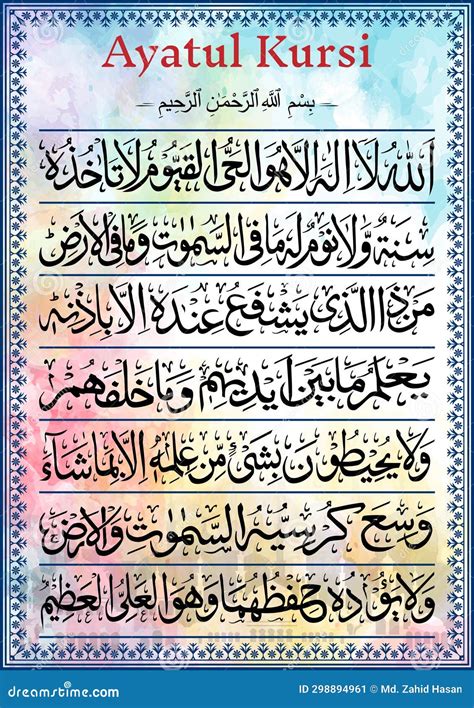 Ayatul Kursi
بِسْمِ اللَّهِ الرَّحْمَٰنِ الرَّحِيمِ
اَللّٰهُ لَا اِلٰهَ اِلَّا هُوَ الْحَیُّ الْقَیُّوْمُ لَا تَاْخُذُهٗ
سِنَةٌ وَّلَا نَوْمٌ لَهٗ مَا فِی السَّمٰوٰتِ وَمَا فِی الْاَرْضِ
مَنْ ذَا الَّذِیْ یَشْفَعُ عِنْدَهٗ اِلَّا بِاِذْنِهٖ
یَعْلَمُ مَا بَیْنَ اَیْدِیْهِمْ وَمَا خَلْفَهُمْ
وَلَا یُحِیْطُوْنَ بِشَیْءٍ مِّنْ عِلْمِهٖ اِلَّا بِمَا شَآءَ
وَسِعَ كُرْسِیُّهُ السَّمٰوٰتِ وَالْاَرْضَ
وَلَا یَـُٔوْدُهٗ حِفْظُهُمَا وَهُوَ الْعَلِیُّ الْعَظِیْمُ
dreamstime.com
ID 298894961 © Md. Zahid Hasan